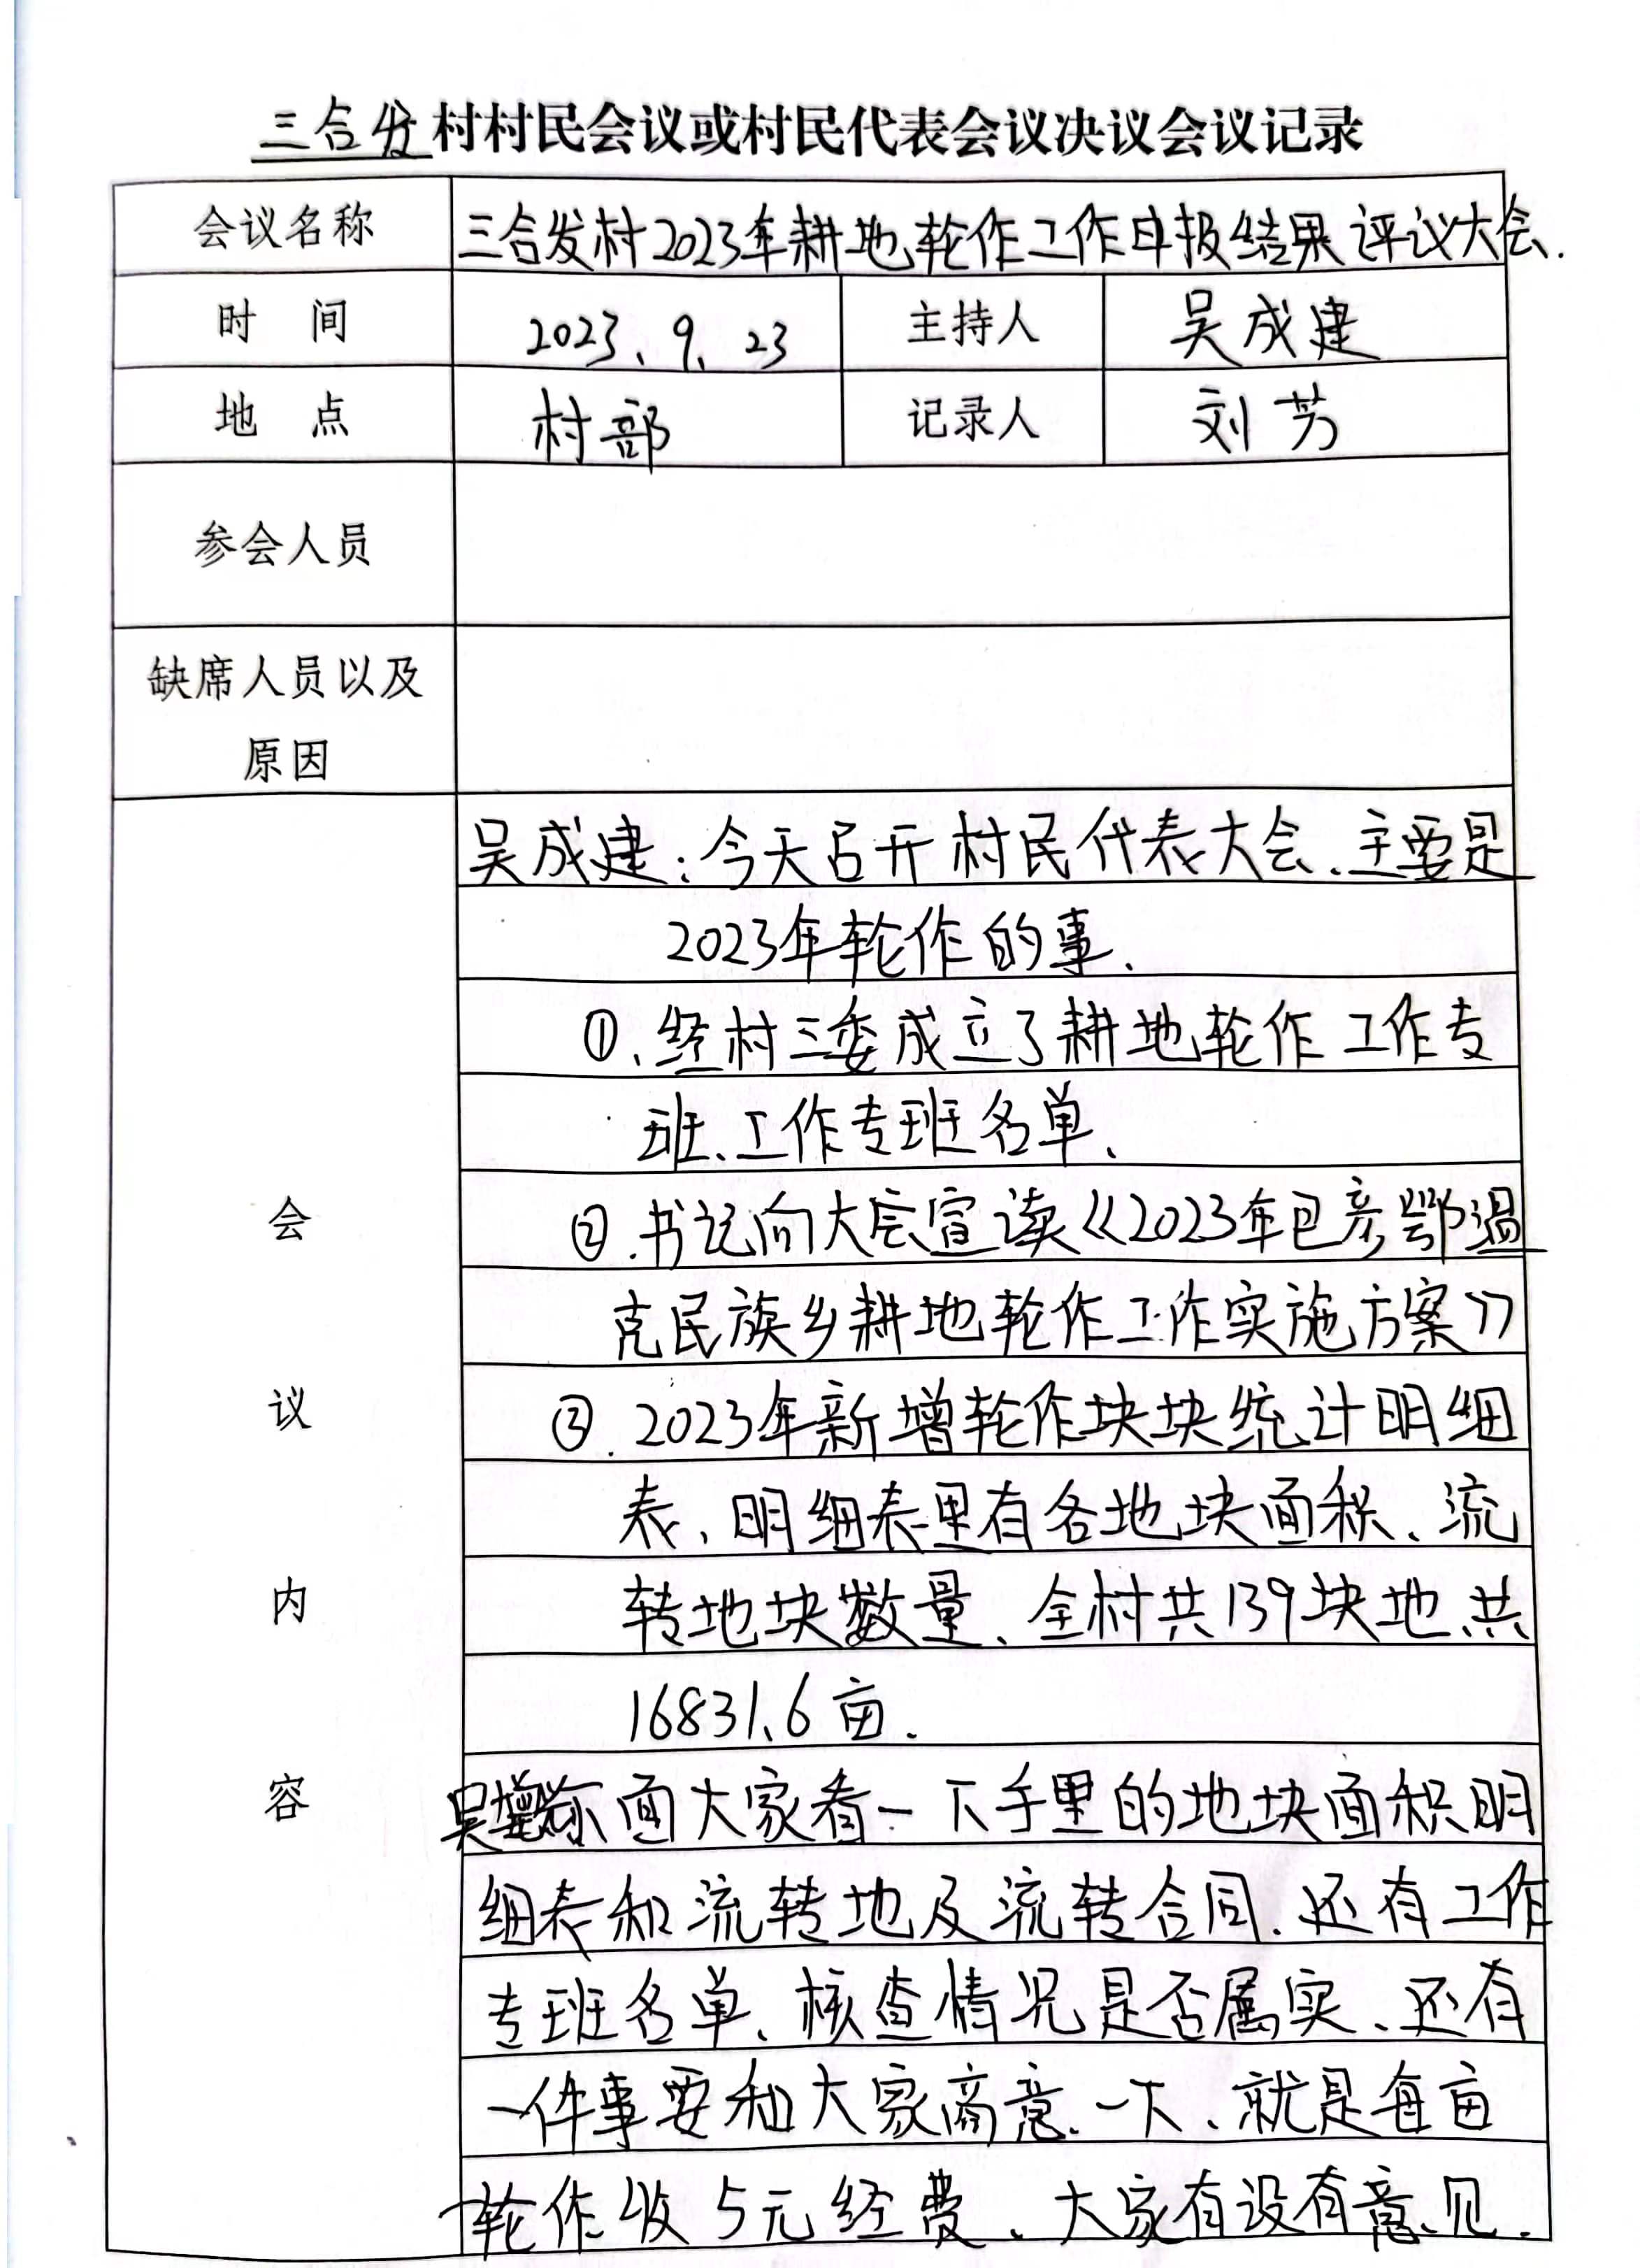 三合发村村民会议或村民代表会议决议会议记录
会议名称 三合发村2023年耕地轮作工作申报结果评议大会.
时 间 2023、9、23 主持人 吴成建
地 点 村部 记录人 刘芳
参会人员
缺席人员以及
原因
会议内容
吴成建:今天召开村民代表大会、主要是
2023年轮作的事、
①、经村三委成立了耕地轮作工作专
班、工作专班名单、
②.书记向大会宣读《2023年巴彦鄂温
克民族乡耕地轮作工作实施方案》
③.2023年新增轮作块块统计明细
表、明细表里有各地块面积、流
转地块数量、全村共139块地、共
16831.6亩.
吴 面大家看一下手里的地块面积明
细表和流转地及流转合同、还有工作
专班名单、核查情况是否属实、还有
一件事要和大家商意、一下、就是每亩
轮作收5元经费、大家有没有意见.